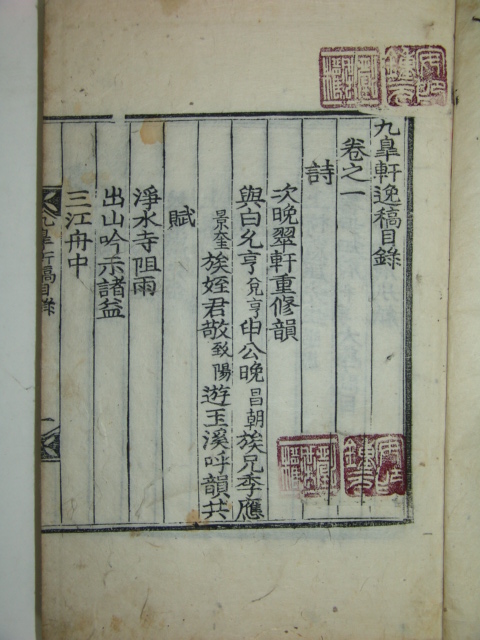 九皐軒逸稿目錄
卷之一
詩
次晚翠軒重修韻
與白允亨兌亨申公晚昌朝族兄季應
景奎族姪君敬致陽遊玉溪呼韻共
賦
淨水寺阻雨
出山吟示諸益
三江舟中
九皐軒逸稿目錄 一